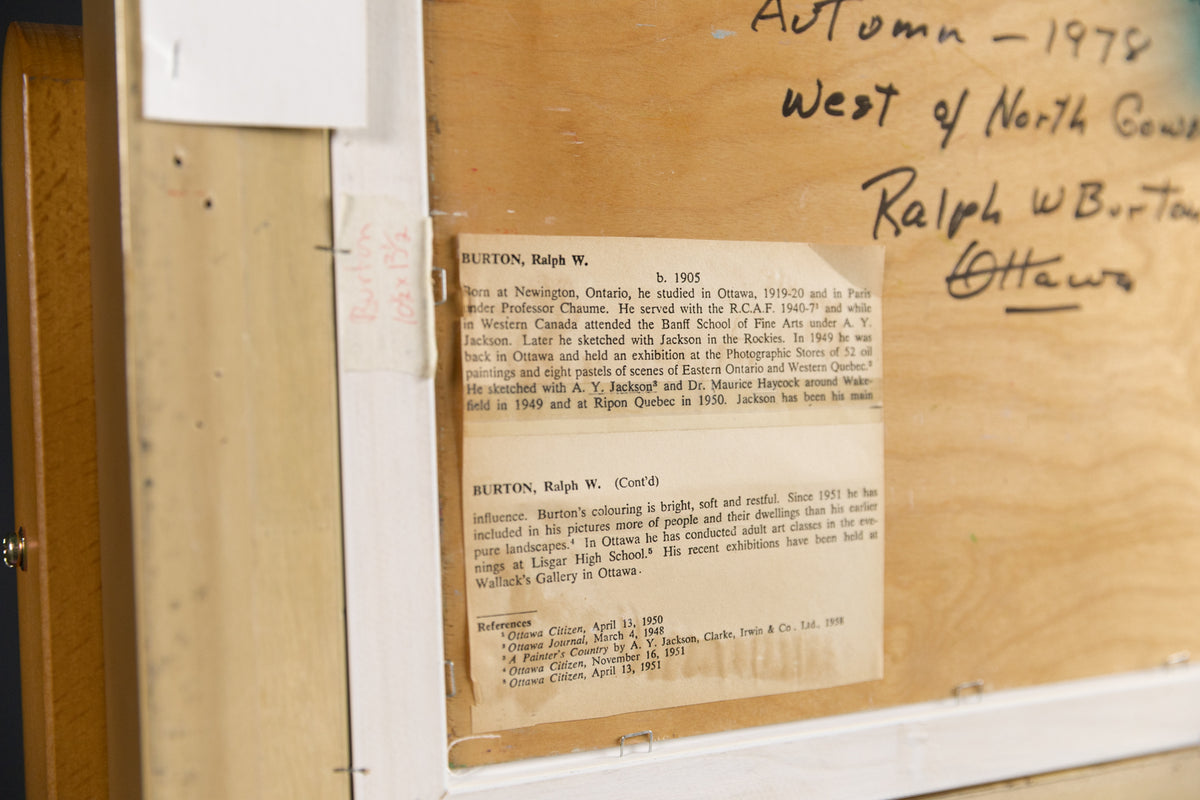 Automn - 1978
West of North Gowe
Ralph W Burton
Ottawa
Burton
10½ x 13½
BURTON, Ralph W.
b. 1905
Born at Newington, Ontario, he studied in Ottawa, 1919-20 and in Paris
under Professor Chaume. He served with the R.C.A.F. 1940-7¹ and while
in Western Canada attended the Banff School of Fine Arts under A. Y.
Jackson. Later he sketched with Jackson in the Rockies. In 1949 he was
back in Ottawa and held an exhibition at the Photographic Stores of 52 oil
paintings and eight pastels of scenes of Eastern Ontario and Western Quebec.²
He sketched with A. Y. Jackson³ and Dr. Maurice Haycock around Wake-
field in 1949 and at Ripon Quebec in 1950. Jackson has been his main
BURTON, Ralph W. (Cont'd)
influence. Burton's colouring is bright, soft and restful. Since 1951 he has
included in his pictures more of people and their dwellings than his earlier
pure landscapes.⁴ In Ottawa he has conducted adult art classes in the eve-
nings at Lisgar High School.⁵ His recent exhibitions have been held at
Wallack's Gallery in Ottawa.
References
¹ Ottawa Citizen, April 13, 1950
² Ottawa Journal, March 4, 1948
³ A Painter's Country by A. Y. Jackson, Clarke, Irwin & Co. Ltd., 1958
⁴ Ottawa Citizen, November 16, 1951
⁵ Ottawa Citizen, April 13, 1951